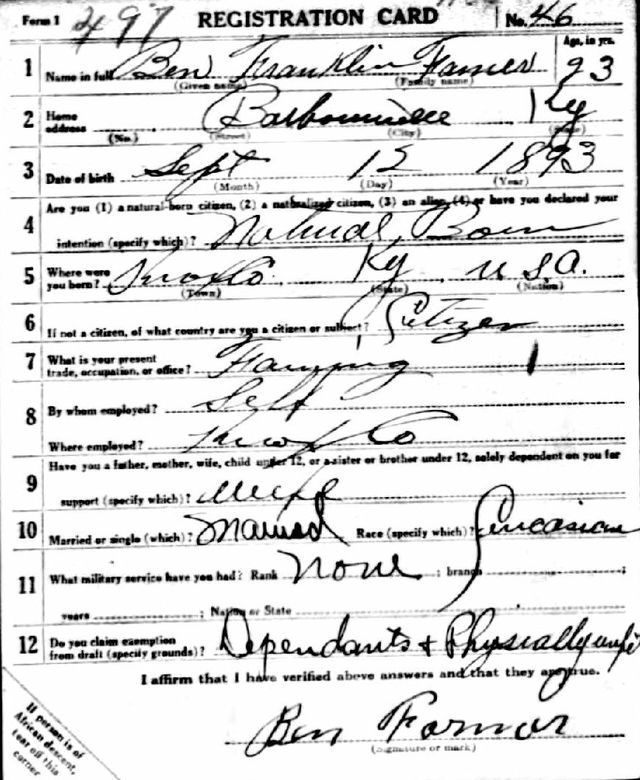 Form 1 497 REGISTRATION CARD No. 46
Age, in yrs.
1 Name in full Ben Franklin Farmer 23
(Given name) (Family name)
2 Home address Barbourville Ky
(No.) (Street) (City) (State)
3 Date of birth Sept 12 1893
(Month) (Day) (Year)
4 Are you (1) a natural-born citizen, (2) a naturalized citizen, (3) an alien, (4) or have you declared your
intention (specify which)? Natural Born
5 Where were you born? Knox Co. Ky U S A.
(Town) (State) (Nation)
6 If not a citizen, of what country are you a citizen or subject? Citizen
7 What is your present
trade, occupation, or office? Farming 1
8 By whom employed? Self
Where employed? Knox Co
9 Have you a father, mother, wife, child under 12, or a sister or brother under 12, solely dependent on you for
support (specify which)? Wife
10 Married or single (which)? Married Race (specify which)? Caucasian
11 What military service have you had? Rank None ; branch ;
years ; Nation or State
12 Do you claim exemption
from draft (specify grounds)? Dependants + Physically unfit
I affirm that I have verified above answers and that they are true.
Ben Farmer
(Signature or mark)
If person is of
African descent,
tear off this
corner